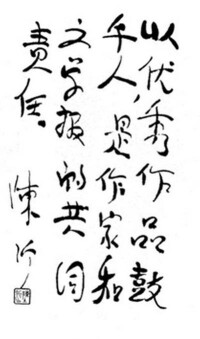 以优秀作品鼓
午人，是作家和
文学报的共同
责任。
陳沂